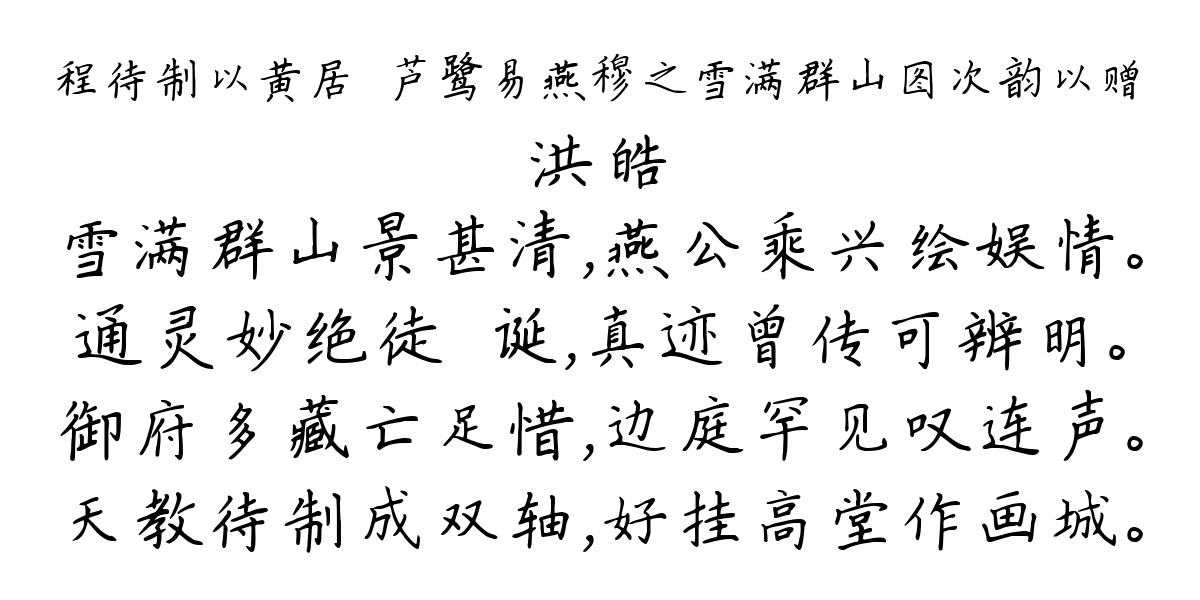 程待制以黄居 芦鹭易燕穆之雪满群山图次韵以赠
洪皓
雪满群山景甚清,燕公乘兴绘娱情。
通灵妙绝徒 诞,真迹曾传可辨明。
御府多藏亡足惜,边庭罕见叹连声。
天教待制成双轴,好挂高堂作画城。